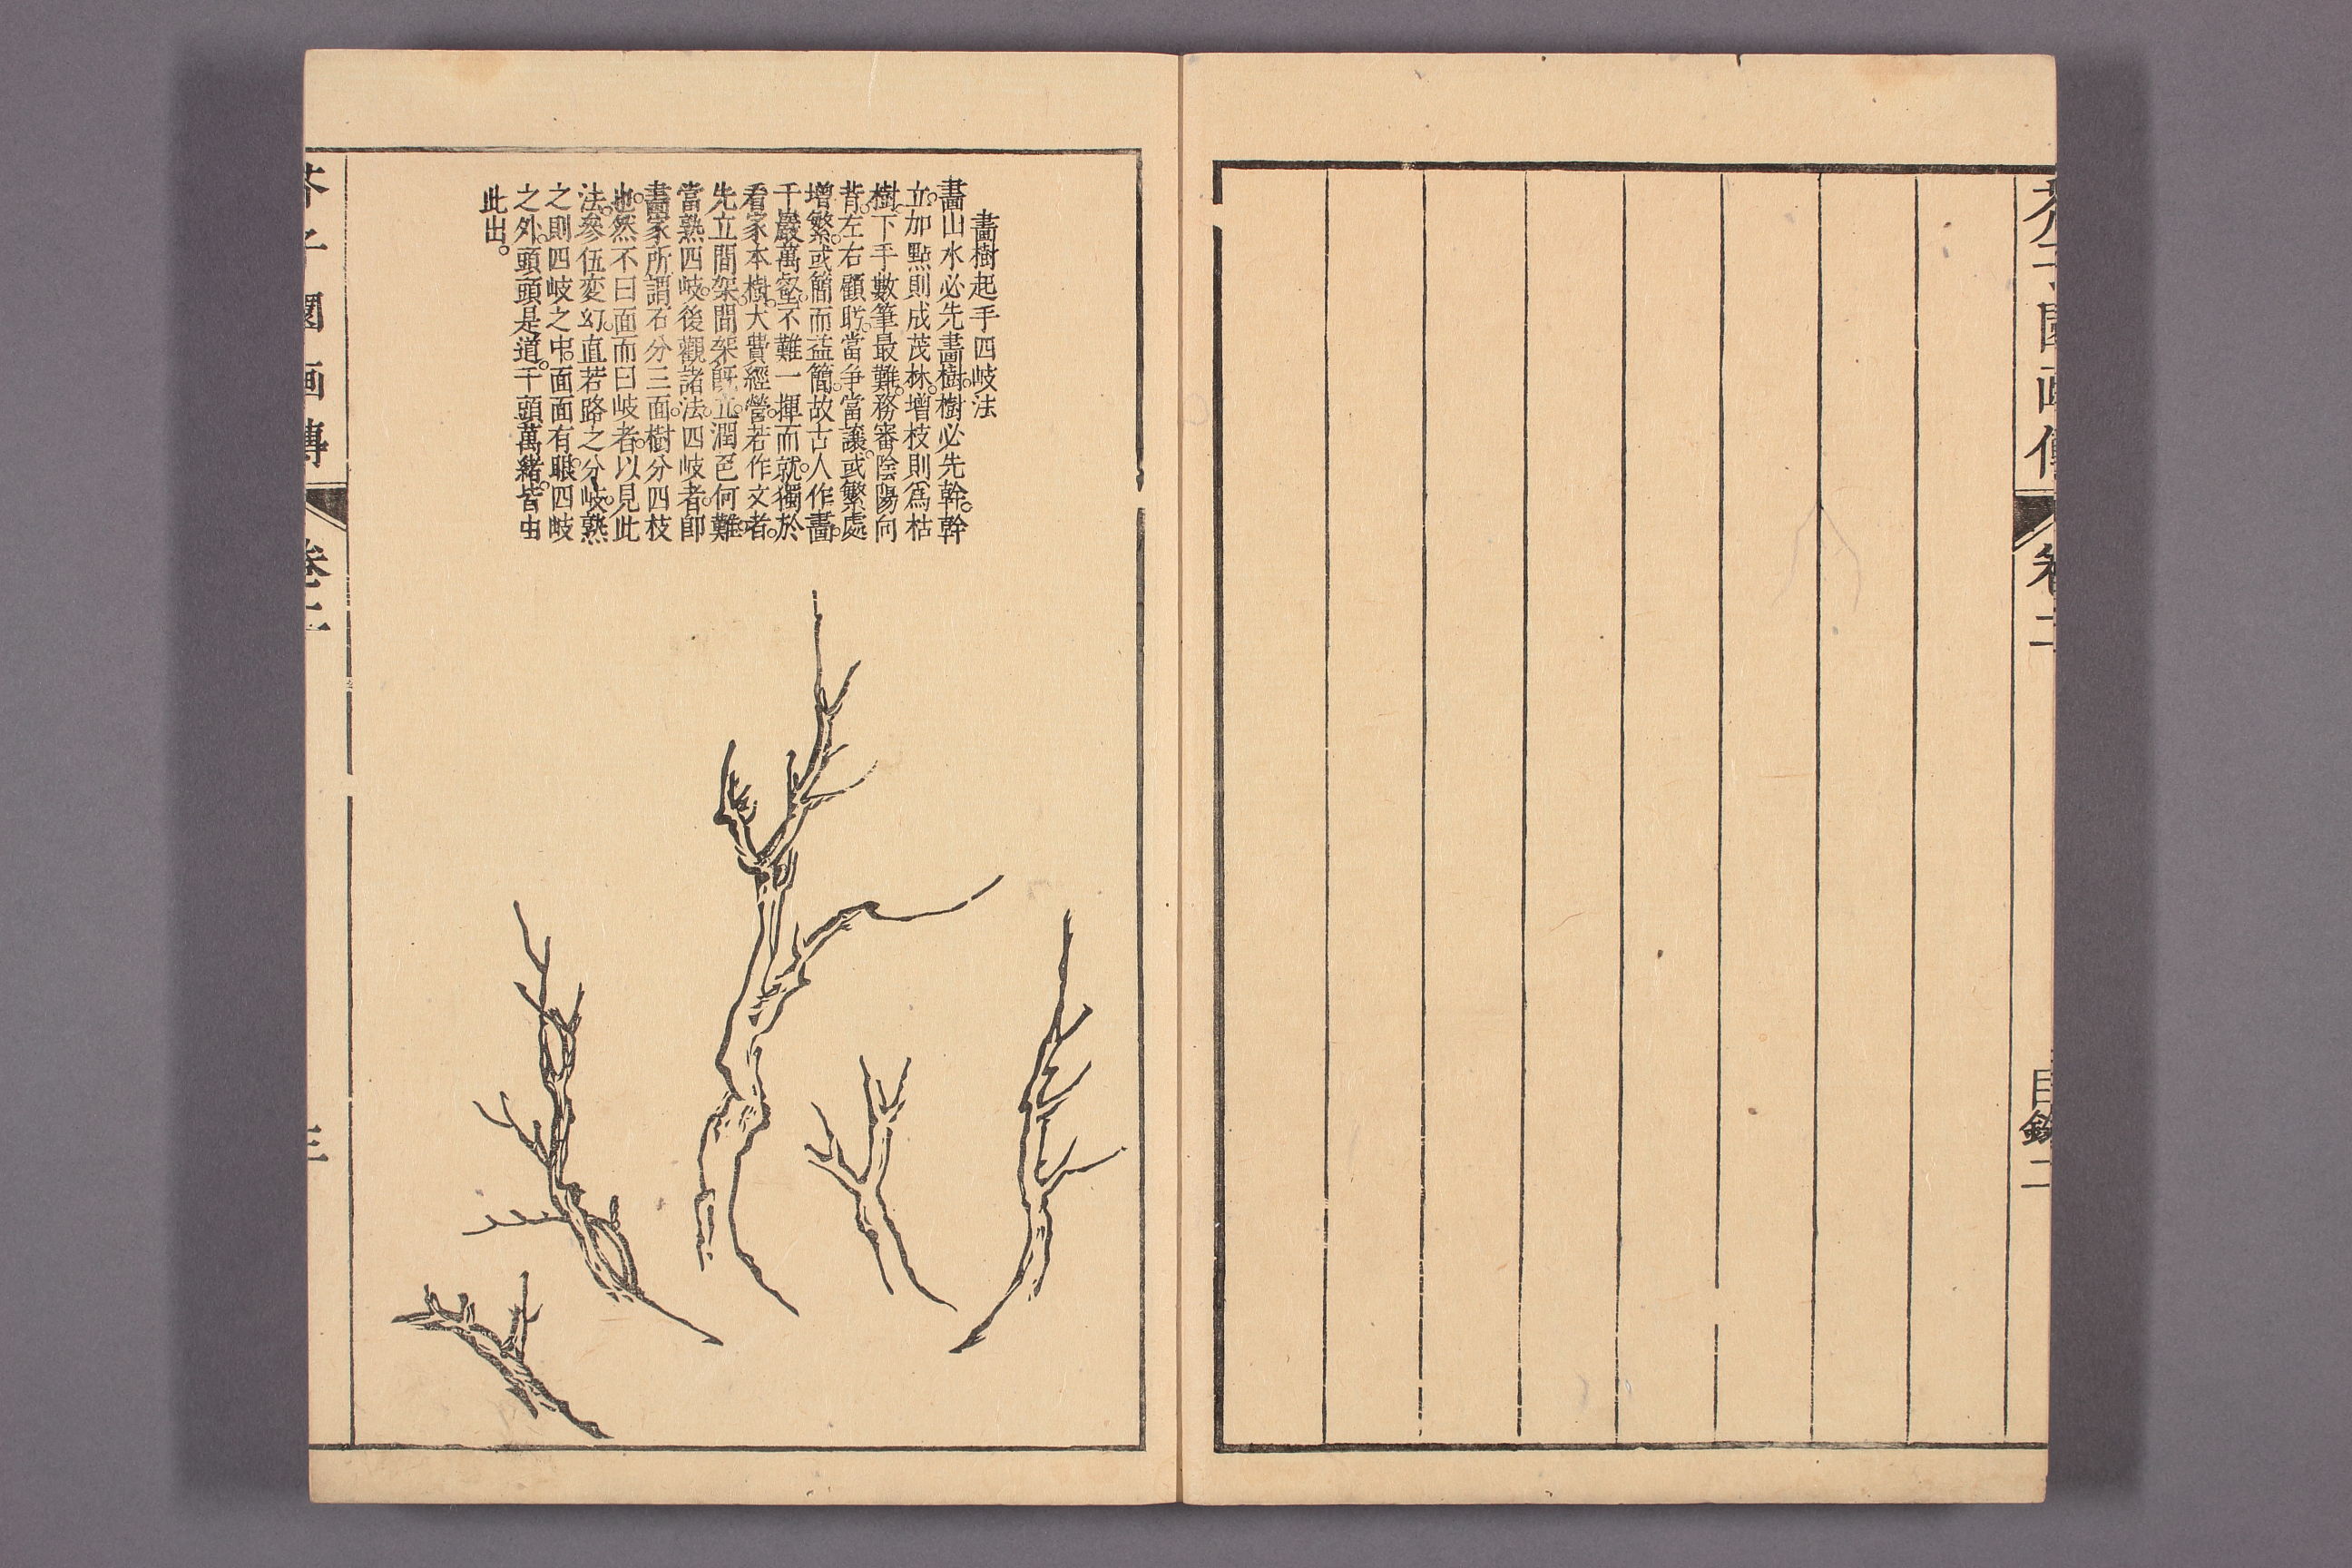 芥子園画傳
卷二
目錄二
畫樹起手四岐法
畫山水必先畫樹。樹必先幹。幹
立。加點則成茂林。增枝則爲枯
樹。下手數筆最難。務審陰陽向
背。左右顧盼。當争當讓。或繁處
增繁。或簡而益簡。故古人作畫。
千巖萬壑。不難一揮而就。獨於
看家本樹。大費經營。若作文者。
先立間架。間架旣立。潤色何難。
當熟四岐。後觀諸法。四岐者。卽
畫家所謂石分三面。樹分四枝
也。然不曰面而曰岐者。以見此
法。參伍変幻。直若路之分岐。熟
之則四岐之中。面面有眼。四岐
之外。頭頭是道。千頭萬緒。皆由
此出。
芥子園画傳
卷二
三